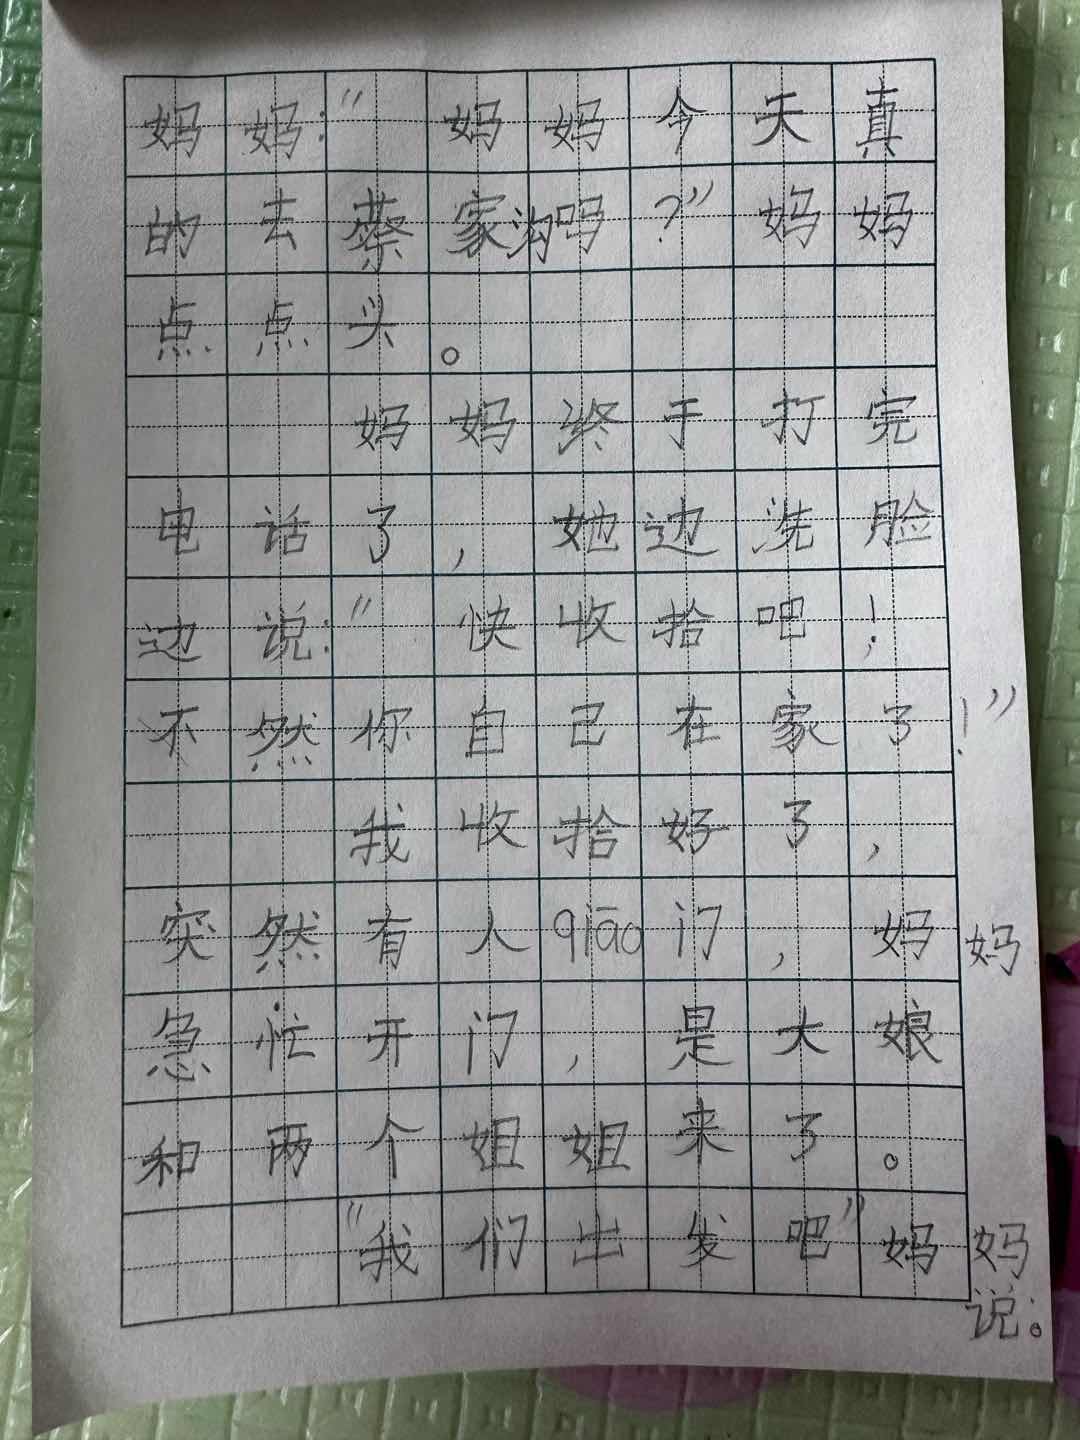 妈妈：“妈妈今天真
的去蔡家沟吗？”妈妈
点点头。
妈妈终于打完
电话了，她边洗脸
边说：“快收拾吧！
不然你自己在家了！”
我收拾好了，
突然有人qiāo门，妈妈
急忙开门，是大娘
和两个姐姐来了。
“我们出发吧”妈妈
说。